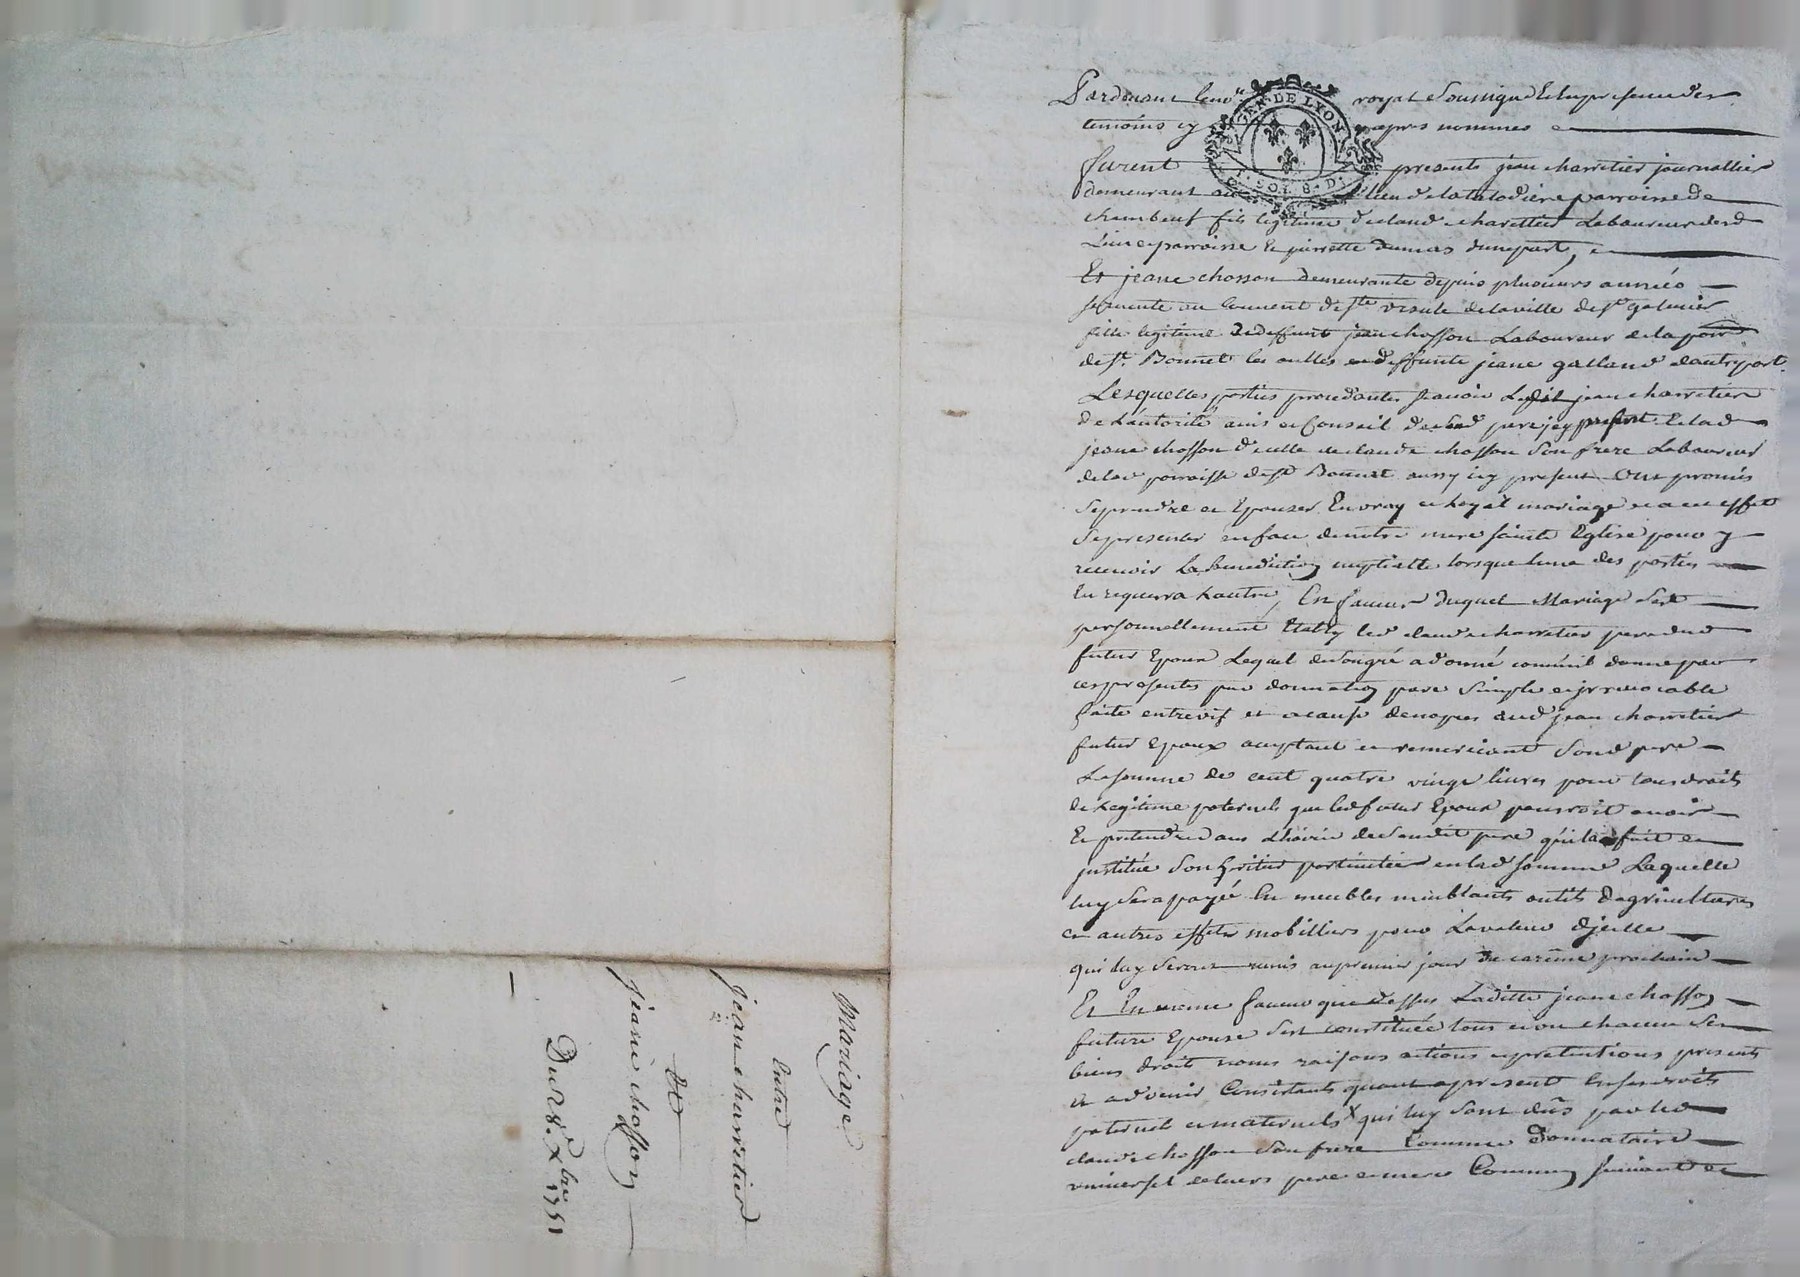 Mariage
Entre
jean charretier
Et
jeane chosson
Du 28. Xbre 1751
GEN DE LYON
SOL 8 D
Pardevant le nore royal Soussigné Et en presence des
temoins cy apres nommes
furent presents jean charretier journallier
demeurant au lieu de la parroisse de
chambeuf fils legitime de claude charettier Laboureur dud
Lieu et parroisse Et pierrette dumas d'une part,
Et jeane chosson demeurante depuis plusieurs années
servente au couvent de ste ursule de la ville de st galmier
fille legitime de deffunt jean chosson Laboureur de la parr
de st. Bonnet les oulles et deffunte jeane galland d'autre part.
Lesquelles parties procedantes sçavoir Ledit jean charretier
de L'autorité avis et Conseil de sond pere jcy present Et lad
jeane chosson d'icelle de claude chosson son frere Laboureur
de lad parroisse de st Bonnet aussy icy present Ont promis
se prendre et Epouser En vray et loyal mariage et a cet effet
se presenter en face de notre mere sainte Eglise pour y
recevoir La benediction nuptialle lorsque l'une des parties
En requerra L'autre, En faveur duquel Mariage s'est
personnellement Etably led claude charretier pere dud
futur Epoux Lequel de son gré a donné comme il donne par
ces presentes par donnation pure simple et jrrevocable
faite entre vif et a cause de nopces aud jean charretier
futur Epoux acceptant et remerciant sond pere
La somme de cent quatre vingt livres pour tous droits
de Legitime paternels que led futur Epoux pourroit avoir
Et pretendre dans L'hoirie de soudit pere qui la fait et
justitué son heritier particulier en lad somme Laquelle
luy sera payée En meubles meublants outils d'agricultures
et autres effets mobilliers pour La valeur d'jcelle
qui luy seront remis au premier jour de carême prochain
Et En meme faveur que dessus Laditte jeane chosson
future Epouse s'est constituée tous et un chacun ses
biens droits noms raisons actions et pretentions presents
et advenir Consistants quant a present En ses droits
paternel et maternels x qui luy sont dûs par led
claude chosson son frere Comme donnataire
universel de leurs pere et mere Commun suivant et